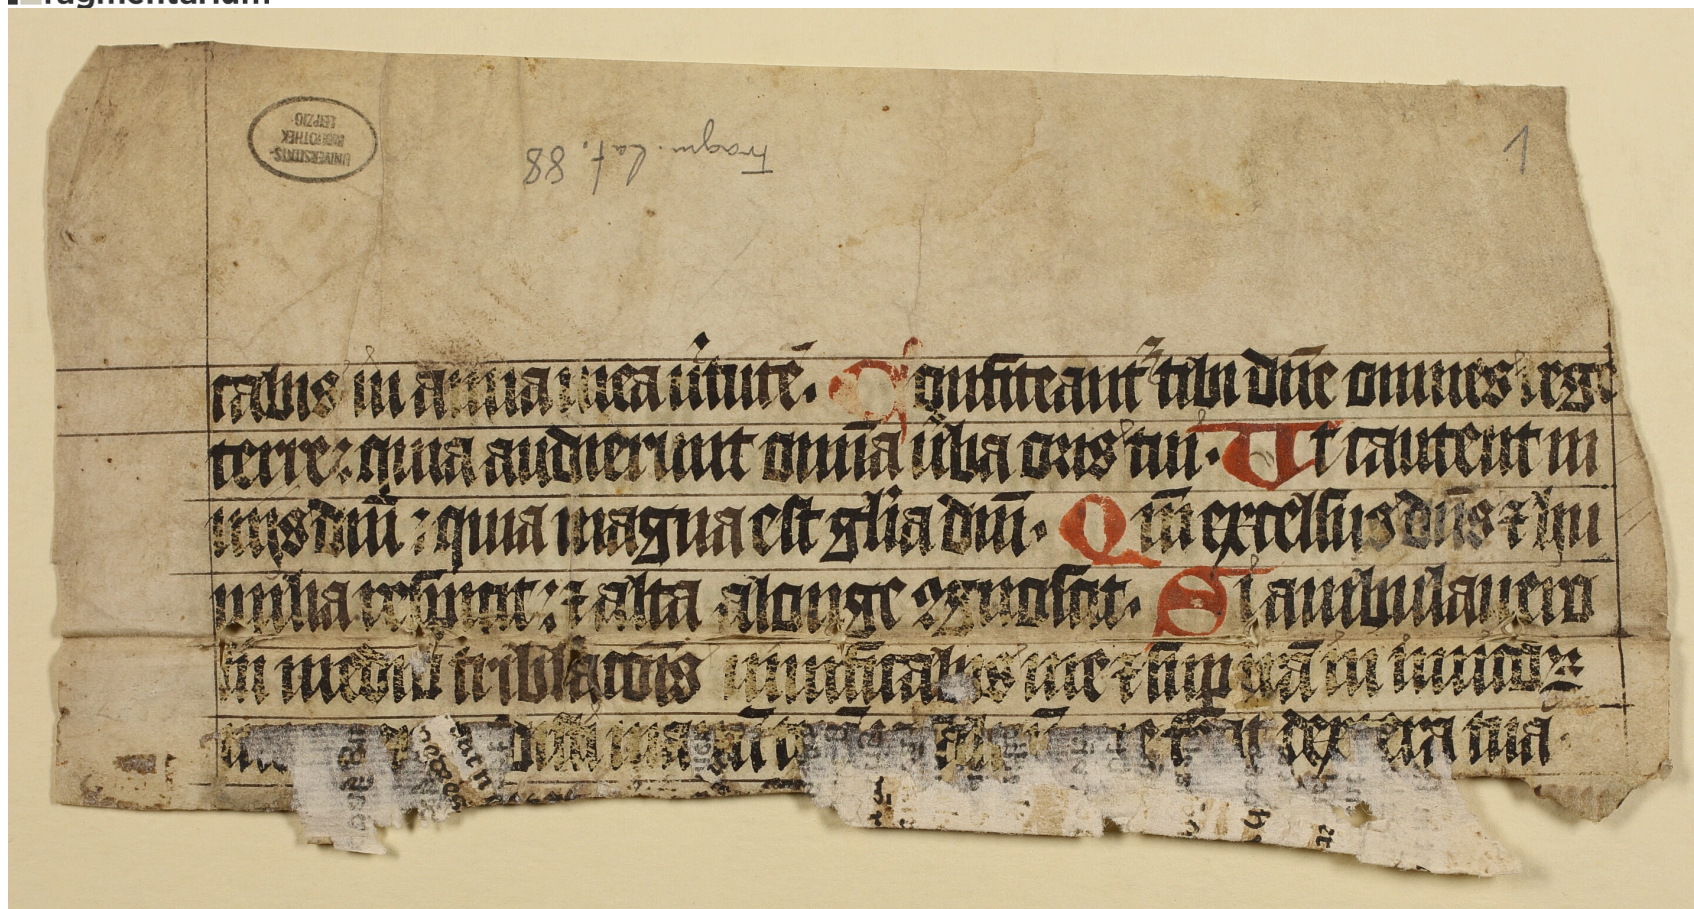 ragmentarium
UNIVERSITÄTS-
BIBLIOTHEK
LEIPZIG
Fragm. Lat. 88
1
cabis in anima mea ùtutē. Confiteant᷑ tibi dn̄e omnes reg
terre: quia audierunt om̄ia ùba oris tui. Ut cantent in
uijs dn̄i: quia magna est gl̄ia dn̄i. Qm̄ excelsus dn̄s ⁊ hu
milia respicit: ⁊ alta a longe ꝯgnoscit. Si ambulauero
in medio tribl̓atōis uiuificabis me ⁊ suꝑ irā inimicoꝝ
manū dextera tua